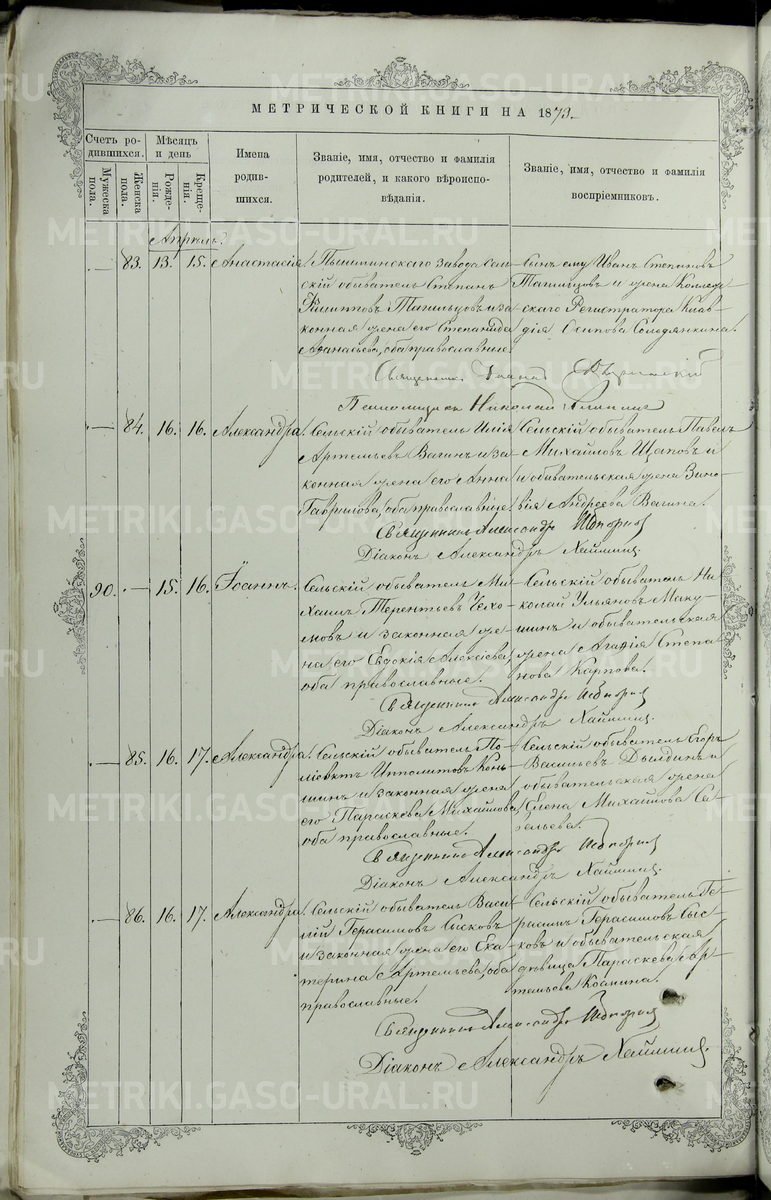 МЕТРИЧЕСКОЙ КНИГИ НА 1873.
Счетъ ро-
дившихся.
Мужеска
пола.
Женска
пола.
Мѣсяцъ
и день
Рожде-
нія.
Креще-
нія.
Имена
родив-
шихся.
Званіе, имя, отчество и фамилія
родителей, и какого вѣроиспо-
вѣданія.
Званіе, имя, отчество и фамилія
воспріемниковъ.
Апрѣль.
83. 13. 15. Анастасія
Пышминскаго Завода Сель-
скій обыватель Степанъ
Филипповъ и за-
конная жена его Степанида
Аѳанасьева, оба православные.
Сынъ ему Иванъ Степановъ
и жена Коллеж-
скаго Регистратора Клав-
дія Осипова Солодянкина.
Священникъ Іоаннъ
Псаломщикъ Николай
84. 16. 16. Александра.
Сельскій обыватель Илія
Артемьевъ Вагинъ и за-
конная жена его Анна
Гаврилова, оба православные.
Сельскій обыватель Павелъ
Михайловъ Щаповъ и
обывательская жена Зино-
вія Андреева Вагина.
Священникъ Александръ
Діаконъ Александръ
90. 15. 16. Іоаннъ.
Сельскій обыватель Ми-
хаилъ Терентьевъ
и законная же-
на его Евдокія Алексіева,
оба православные.
Сельскій обыватель Ни-
колай Ульяновъ Маку-
шинъ и обывательская
жена Агафія Степа-
нова Карпова.
Священникъ Александръ
Діаконъ Александръ
85. 16. 17. Александра.
Сельскій обыватель По-
ліевктъ Ипполитовъ Конь-
шинъ и законная жена
его Параскева Михайлова
оба православные.
Сельскій обыватель Егоръ
Васильевъ и
обывательская жена
Елена Михайлова Са-
вельева.
Священникъ Александръ
Діаконъ Александръ
86. 16. 17. Александра.
Сельскій обыватель Васи-
лій Герасимовъ Сысковъ
и законная жена его Ека-
терина Артемьева, оба
православные.
Сельскій обыватель Ге-
расимъ Герасимовъ Сыс-
ковъ и обывательская
дѣвица Параскева Ар-
темьева
Священникъ Александръ
Діаконъ Александръ
METRIKI.GASO-URAL.RU